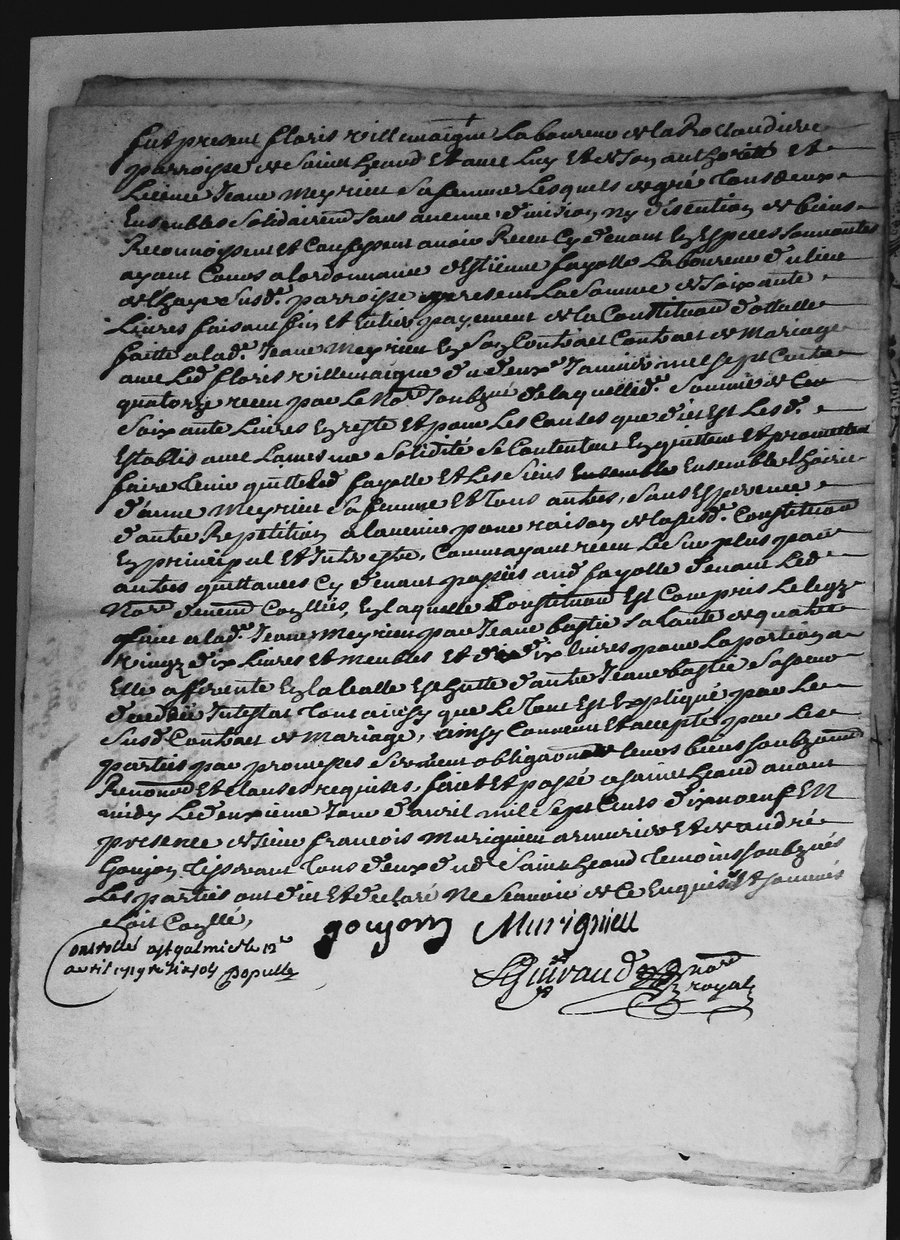 fut present floris villemaigne Laboureur de la Roclaudiere
parroisse de Saint heand Et avec Luy Et de son authorité Et
Licence Jeane Meyrieu sa femme Lesquels de gré tous deux
Ensembles solidairemt sans aucune division ny discution de biens
Reconnoissent et Confessent avoir Receu Cy devant En Especes sonnantes
ayant Cours a lordonnance d'Estienne fayolle Laboureur du lieu
de lhaye susd. parroisse present La somme de soixante
Livres faisant fin Et Entier payement de la Constitution dottalle
faitte a lad. Jeane Meyrieu En son Contract Contract de Mariage
avec Led floris villemaigne du deuxe Janvier mil sept Cents
quatorze receu par le Nore soubzné de laquelle de. somme de Cen
soixante Livres En reste Et pour Les Causes que dict Est Les d.
Establis avec La mesme solidité se Contentent En quittent Et promettent
faire Tenir quitte Led fayolle Et Les siens Ensemble Ensemble Lhoirie
d'anne Meyrieu sa femme Et tous autres, sans Esperence
d'autre Repetition a lavenir pour raison de la susd. Constitution
En principal Et Interestz, Comme ayant receu Le surplus par
autres quittances Cy devant passées aud fayolle devant Led
Nore devemt Conllées, En laquelle Constitution Est Compris Le legz
fait a lad. Jeane Meyrieu par Jeane bastie sa tante de quatre
vingz dix Livres Et meubles Et dix Livres pour La portion a
Elle afferente En la Cealle Escheutte d'autre Jeane bastie sa soeur
decedée Intestat tout ainsy que Le tout Est Expliqué par Le
susd Contract de Mariage, ainsy Convenu Et accepté par Les
parties par promesses sermentz obligaon de leurs biens soubzmon
Renon Et clauses requises, fait Et passé a saint heand avant
midy Le deuxieme Jour d'avril mil sept Cents dixnoeuf EN
presence de sieur francois Murignieu armurier Et de andré
Goujon Tisserant tous deux dud Saint heand temoins soubznés
Les parties ont dit Et declaré Ne scavoir de Ce Enquises Et sommées
Soit Conllé,
goujon Murignieu
Controllé a st galmier le 12e
avril 1719 Populle
Guiraud nore
royal